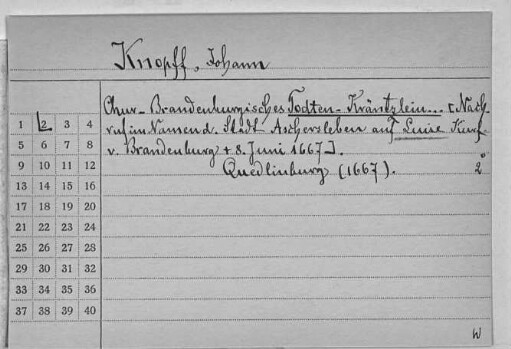 Knopff, Johann
Chur-Brandenburgisches Todten-Kräntzlein... [Nach-
ruf im Namen d. Stadt Aschersleben auf Luise Kurf.
v. Brandenburg + 8. Juni 1667].
Quedlinburg (1667). 2°
1 2 3 4
5 6 7 8
9 10 11 12
13 14 15 16
17 18 19 20
21 22 23 24
25 26 27 28
29 30 31 32
33 34 35 36
37 38 39 40
W